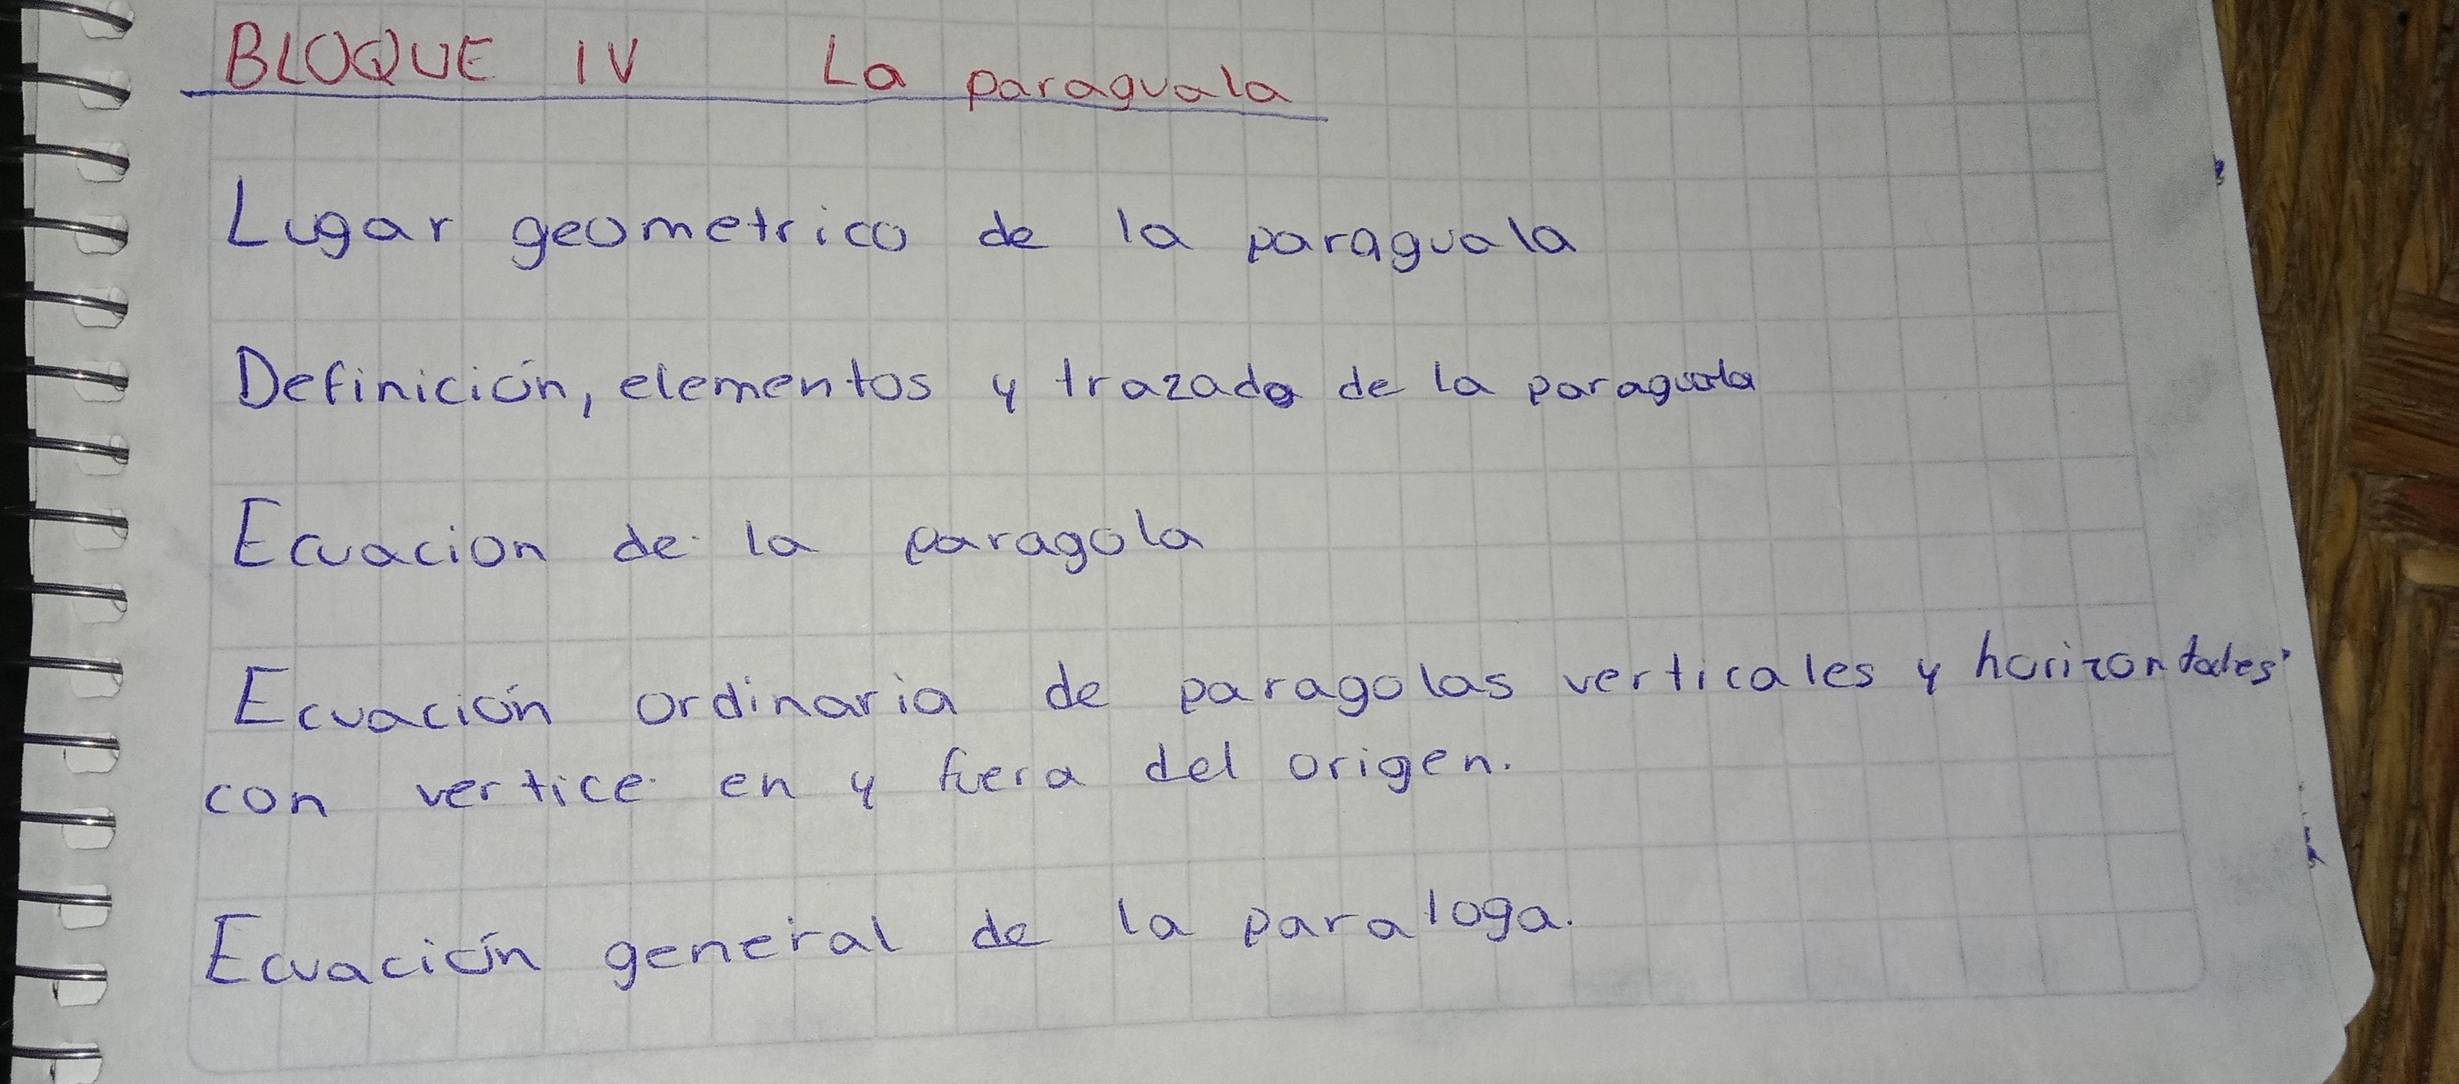 BLOQUE IV La paraguala
Lugar geometrico de la paraguala
Definición, elementos y trazado de la paraguala
Ecuacion de la paragola
Ecuación ordinaria de paragolas verticales y horizontales
con vertice en y fuera del origen.
Ecuación general de la paraloga.